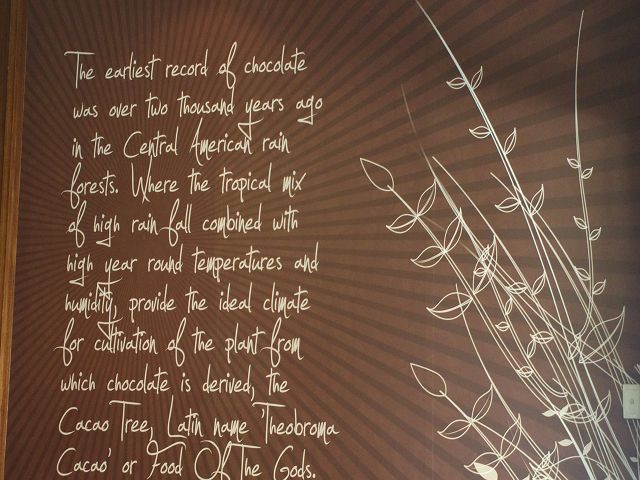 The earliest record of chocolate
was over two thousand years ago
in the Central American rain
forests. Where the tropical mix
of high rain fall combined with
high year round temperatures and
humidity, provide the ideal climate
for cultivation of the plant from
which chocolate is derived, the
Cacao Tree, Latin name 'Theobroma
Cacao' or Food Of The Gods.